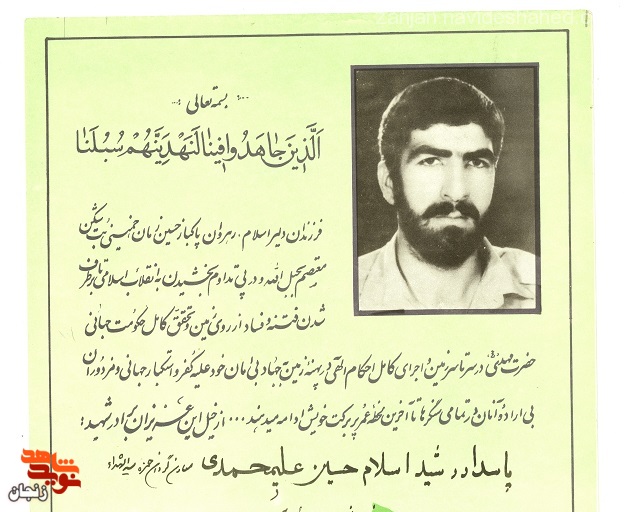 zanjan.navideshahed.c
بسمه تعالی
اَلَّذینَ جاهَدُوا فینا لَنَهْدِیَنَّهُمْ سُبُلَنا
فرزندان دلیر اسلام، رهروان پاکباز حسین زمان خمینی بت شکن
معتصم بحبل الله و در پی تداوم بخشیدن به انقلاب اسلامی تا برطرف
شدن فتنه و فساد از روی زمین و تحقق کامل حکومت جهانی
حضرت مهدی در سرتاسر زمین و اجرای کامل احکام الهی در پهنه زمین به جهاد بی امان خود علیه کفر و استکبار جهانی و مزدوران
بی اراده آنان در تمامی سنگرها تا آخرین لحظه عمر پر برکت خویش ادامه میدهند ... از خیل این عزیزان برادر شهید؛
پاسدار رشید اسلام حسین علیمحمدی
شاهد
نوید
زنجان